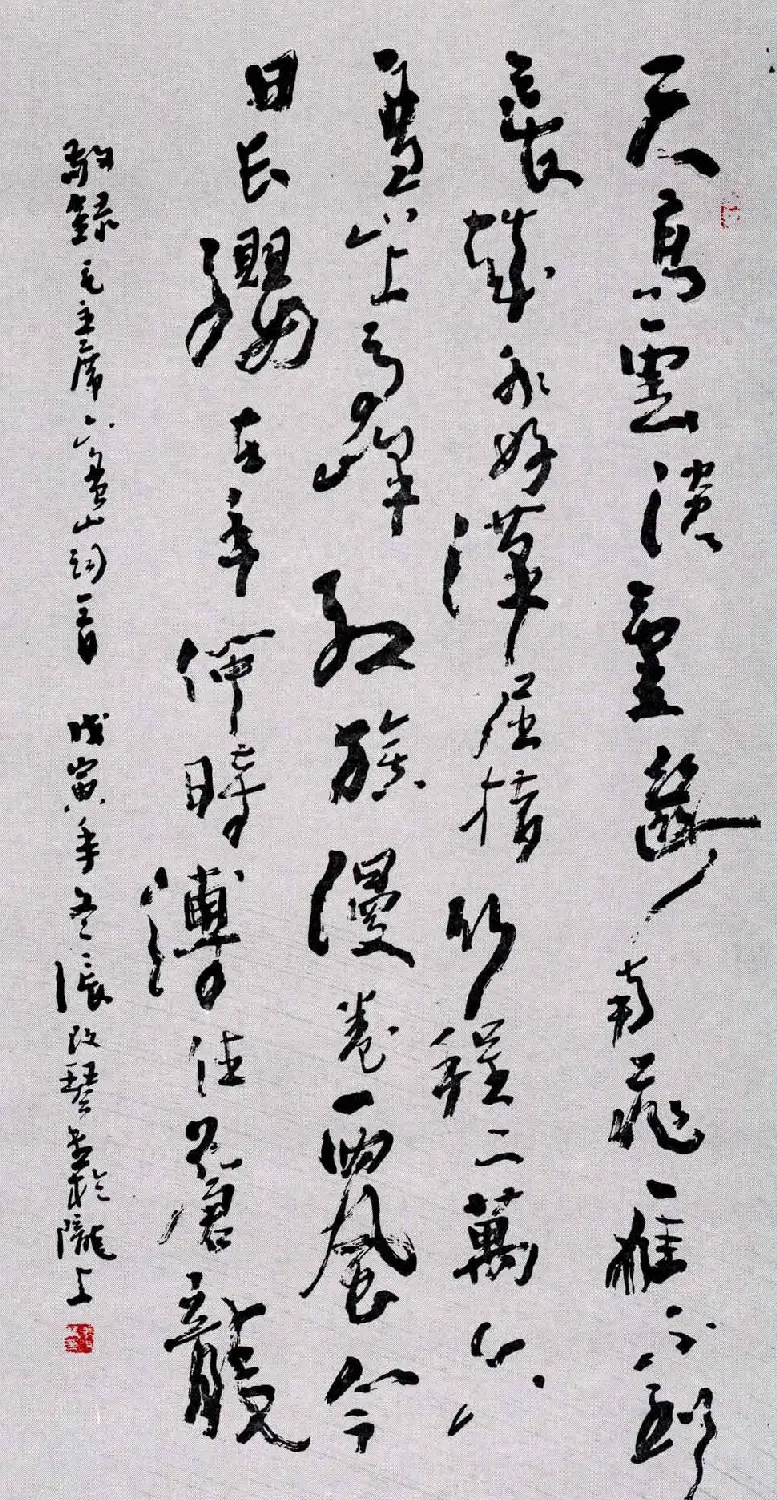 天高雲淡望斷南飛雁不到
長城非好漢屈指行程二萬六
盤山上高峰紅旗漫卷西風今
日長纓在手何時縛住蒼龍
敬錄毛主席六盤山詞一首 戊寅年冬張改琴書於隴上